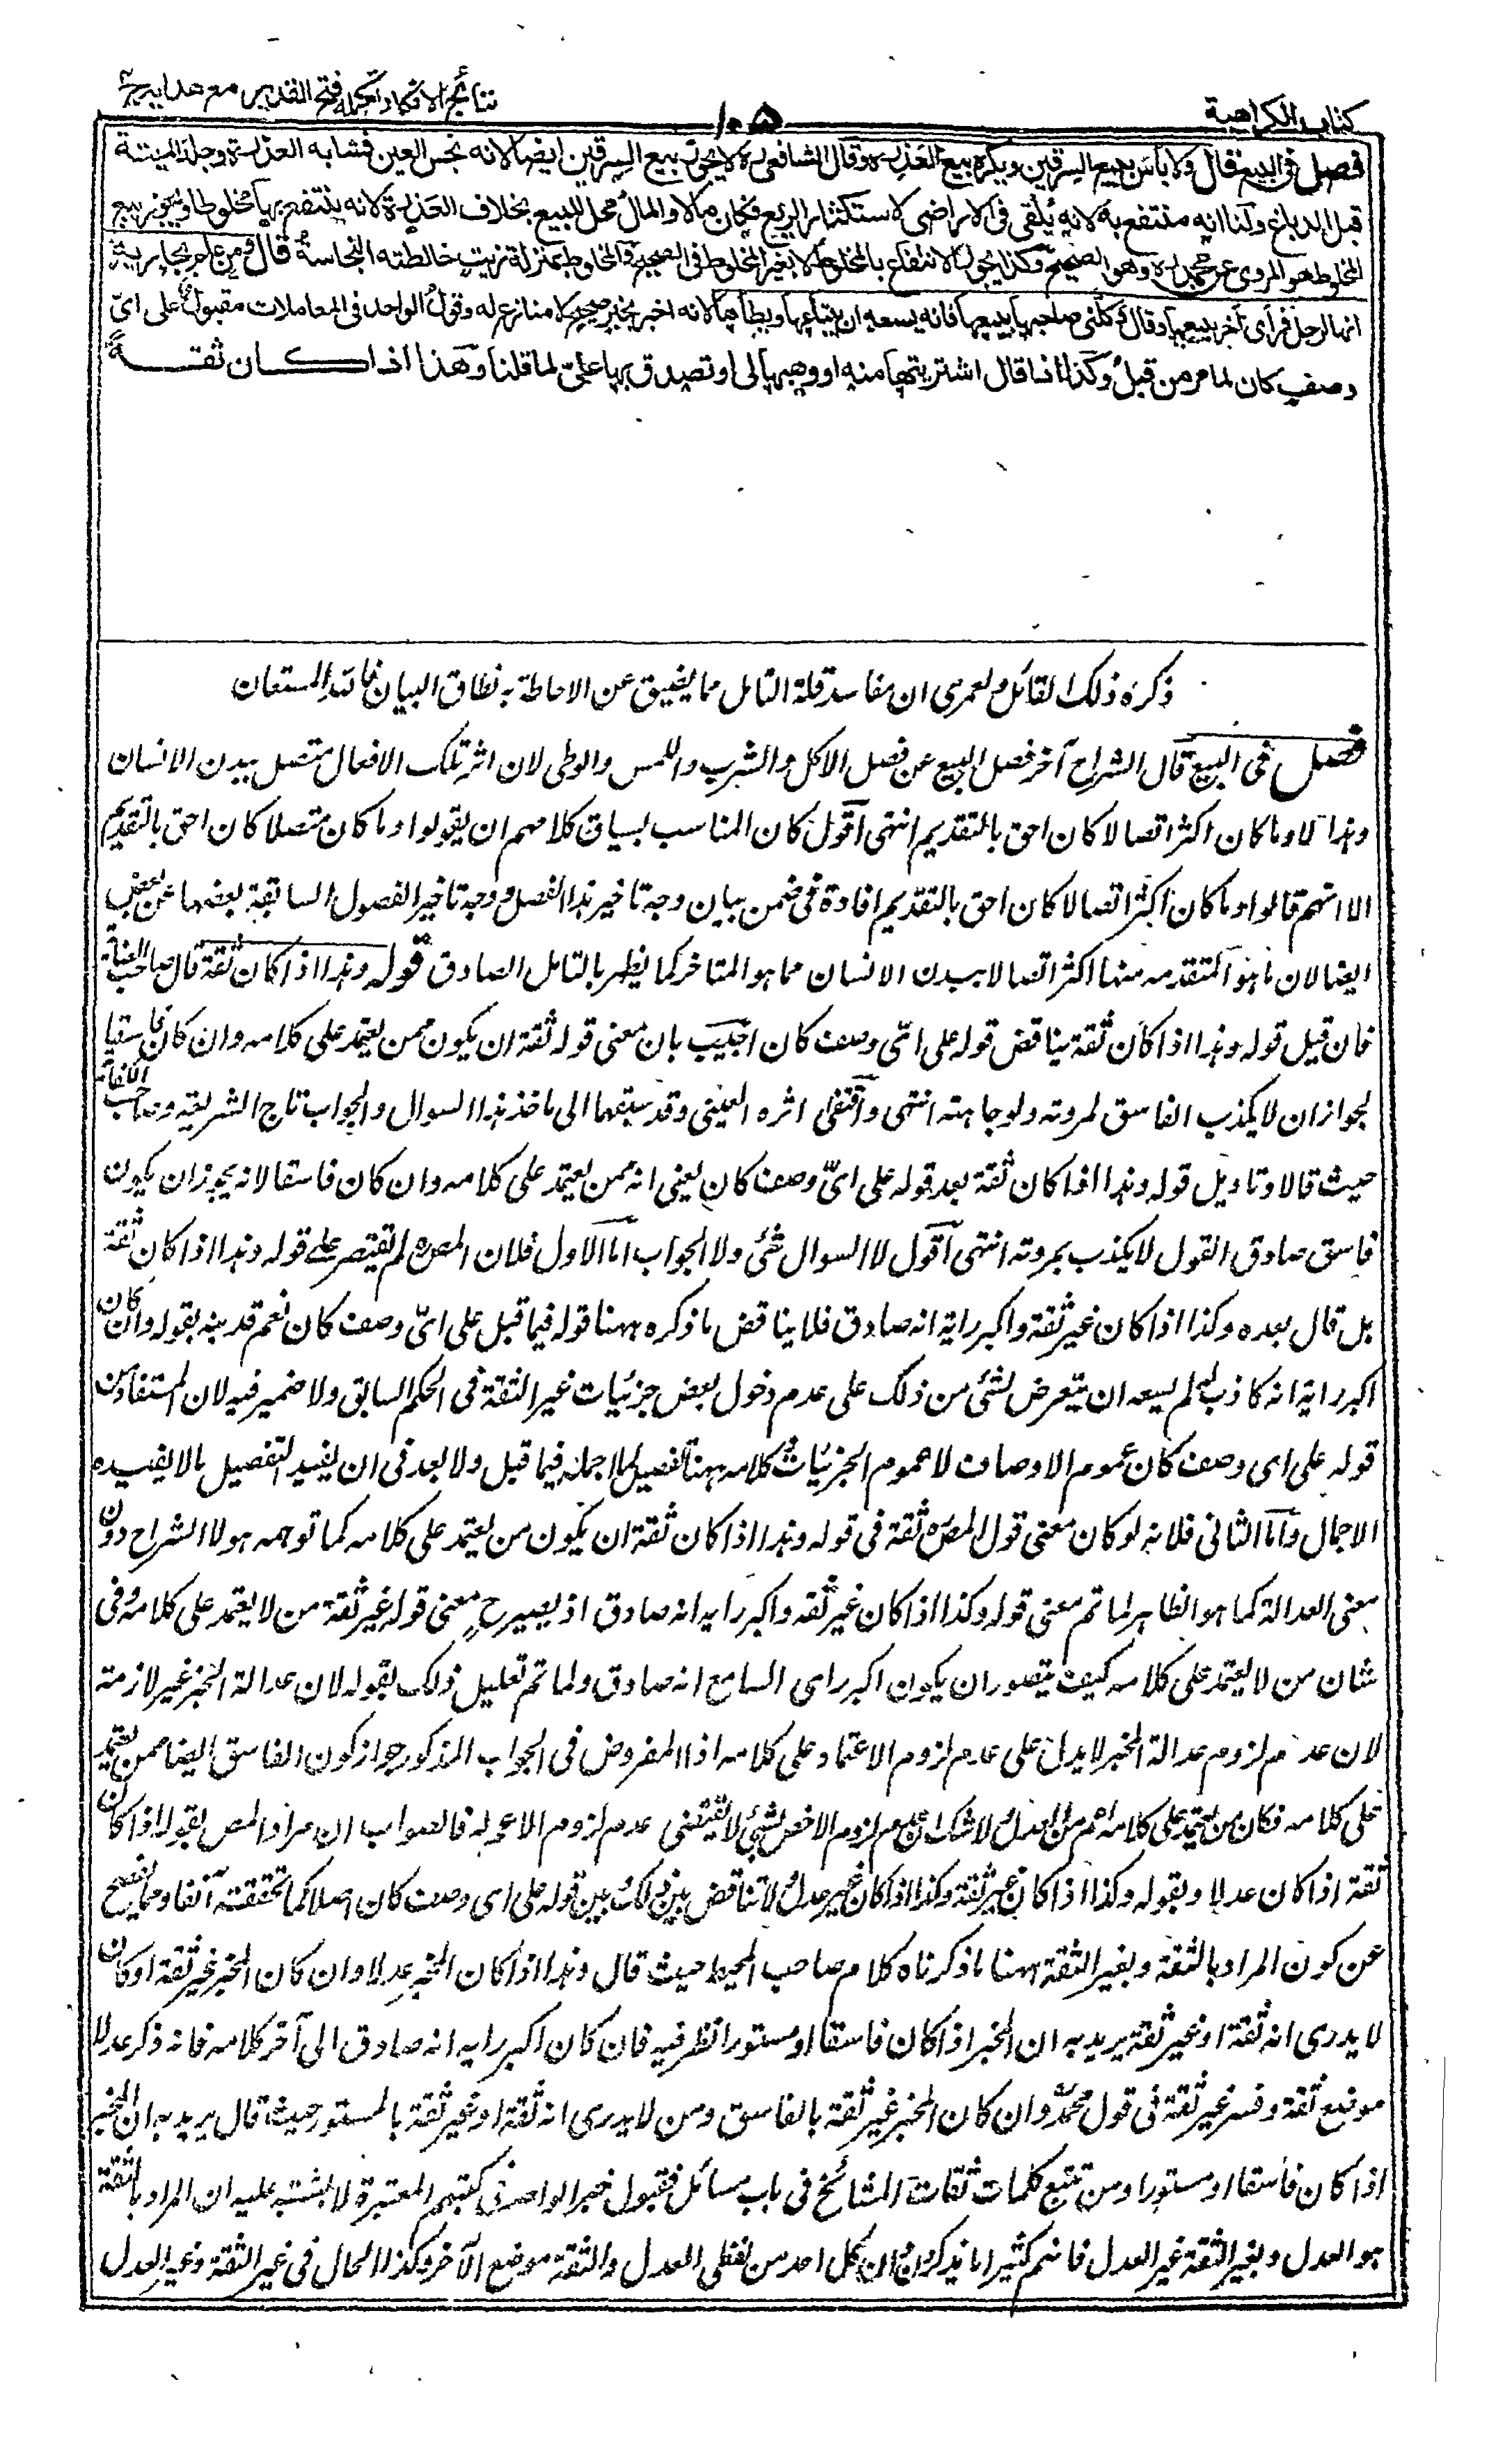 كتاب الكراهية
١٠٥
نتائج الافكار تكملة فتح القدير مع هدايه ج٤
فصل فى البيع قال ولا باس ببيع السرقين ويكره بيع العذرة وقال الشافعى رح لا يجوز بيع السرقين ايضا لانه نجس العين فشابه العذرة وجلد الميتة
قبل الدباغ ولنا انه منتفع به لانه يلقى فى الاراضى لاستكثار الريع فكان مالا والمال محل للبيع بخلاف العذرة لانه ينتفع بها مخلوطا ويجوز بيع
المخلوط هو المروى عن محمد رح وهو الصحيح وكذا يجوز الانتفاع بالمخلوط لا بغير المخلوط فى الصحيح والمخلوط بمنزلة زيت خالطته النجاسة قال ومن علم بجارية
انها لرجل فرأى آخر يبيعها وقال وكلنى صاحبها ببيعها فانه يسعه ان يبتاعها ويطأها لانه اخبر بخبر صحيح لا منازع له وقول الواحد فى المعاملات مقبول على اىّ
وصف كان لما مر من قبل وكذا اذا قال اشتريتها منه او وهبها لى او تصدق بها علىّ لما قلنا وهذا اذا كان ثقة
ذكره ذلك القائل ولعمرى ان مفاسد قلة التامل مما يضيق عن الاحاطة به نطاق البيان فالله المستعان
فصل فى البيع قال الشراح آخر فصل البيع عن فصل الاكل والشرب واللمس والوطى لان اثر تلك الافعال متصل ببدن الانسان
وهذا لا وما كان اكثر اتصالا كان احق بالتقديم انتهى اقول كان المناسب لسياق كلامهم ان يقولوا وما كان متصلا كان احق بالتقديم
الا انهم قالوا وما كان اكثر اتصالا كان احق بالتقديم افادة فى ضمن بيان وجه تاخير هذا الفصل ووجه تاخير الفصول السابقة بعضها عن بعض
ايضا لان ما هو المتقدم منها اكثر اتصالا ببدن الانسان مما هو المتاخر كما يظهر بالتامل الصادق قوله وهذا اذا كان ثقة قال صاحب العناية
فان قيل قوله وهذا اذا كان ثقة يناقض قوله على اىّ وصف كان اجيب بان معنى قوله ثقة ان يكون ممن يعتمد على كلامه وان كان فاسقا
لجواز ان لا يكذب الفاسق لمروته ولوجاهته انتهى واقتفى اثره العينى وقد سبقهما الى ماخذ هذا السوال والجواب تاج الشريعة وصاحب الكفاية
حيث قالا وتاويل قوله وهذا اذا كان ثقة بعد قوله على اىّ وصف كان يعنى انه ممن يعتمد على كلامه وان كان فاسقا لانه يجوز ان يكون
فاسق صادق القول لا يكذب بمروته انتهى اقول لا السوال شئ ولا الجواب اما الاول فلان المص رح لم يقتصر على قوله وهذا اذا كان ثقة
بل قال بعده وكذا اذا كان غير ثقة واكبر رايه انه صادق فلا يناقض ما ذكره ههنا قوله فيما قبل على اىّ وصف كان نعم قد ينبه بقوله وان كان
اكبر رايه انه كاذب لم يسعه ان يتعرض لشئ من ذلك على عدم دخول بعض جزئيات غير الثقة فى الحكم السابق ولا ضمير فيه لان المستفاد من
قوله على اى وصف كان عموم الاوصاف لا عموم الجزئيات فكلامه ههنا تفصيل لما اجمله فيما قبل ولا بعد فى ان يفيد التفصيل ما لا يفيده
الاجمال واما الثانى فلانه لو كان معنى قول المص رح ثقة فى قوله وهذا اذا كان ثقة ان يكون من يعتمد على كلامه كما توهمه هولا الشراح دون
معنى العدالة كما هو الظاهر لما تم معنى قوله وكذا اذا كان غير ثقة واكبر رايه انه صادق اذ يصير ح معنى قوله غير ثقة من لا يعتمد على كلامه وفى
شان من لا يعتمد على كلامه كيف يتصور ان يكون اكبر راى السامع انه صادق ولما تم تعليل ذلك بقوله لان عدالة المخبر غير لازمة
لان عدم لزوم عدالة المخبر لا يدل على عدم لزوم الاعتماد على كلامه اذ المفروض فى الجواب المذكور جواز كون الفاسق ايضا ممن يعتمد
على كلامه فكان من يعتمد على كلامه اعم من العدل ولا شك ان عدم لزوم الاخص لشئ لا يقتضى عدم لزوم الاعم له فالصواب ان مراد المص بقوله اذا كان
ثقة اذا كان عدلا وبقوله وكذا اذا كان غير ثقة وكذا اذا كان غير عدل ولا تناقض بين ذلك وبين قوله على اى وصف كان اصلا كما تحققته آنفا ومما يفصح
عن كون المراد بالثقة وبغير الثقة ههنا ما ذكرناه كلام صاحب المحيط حيث قال وهذا اذا كان المخبر عدلا وان كان المخبر غير ثقة او كان
لا يدرى انه ثقة او غير ثقة يريد به ان المخبر اذا كان فاسقا او مستورا نظر فيه فان كان اكبر رايه انه صادق الى آخر كلامه فانه ذكر عدلا
موضع ثقة وفسر غير ثقة فى قول محمد رح وان كان المخبر غير ثقة بالفاسق ومن لا يدرى انه ثقة او غير ثقة بالمستور حيث قال يريد به ان المخبر
اذا كان فاسقا او مستورا ومن تتبع كلمات ثقات المشائخ فى باب مسائل قبول خبر الواحد فى كتبهم المعتبرة لا يشتبه عليه ان المراد بالثقة
هو العدل وبغير الثقة غير العدل فانهم كثيرا ما يذكرون ان كل احد من لفظى العدل والثقة موضع الآخر وكذا الحال فى غير الثقة وغير العدل